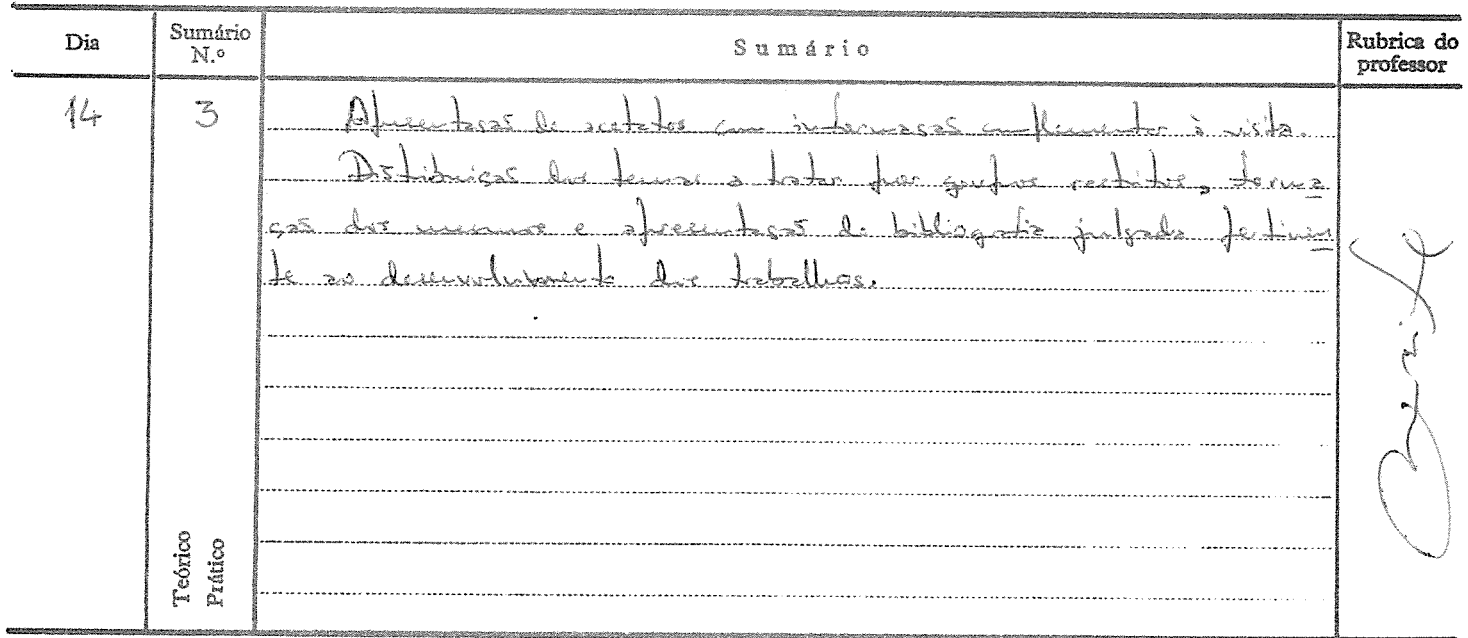 Dia
Sumário N.º
Sumário
Rubrica do professor
14
3
Apresentação de acetatos com informação complementar à visita.
Distribuição dos temas a tratar por grupos restritos, forma
ção dos mesmos e apresentação de bibliografia julgada pertinen
te ao desenvolvimento dos trabalhos.
Teórico
Prático